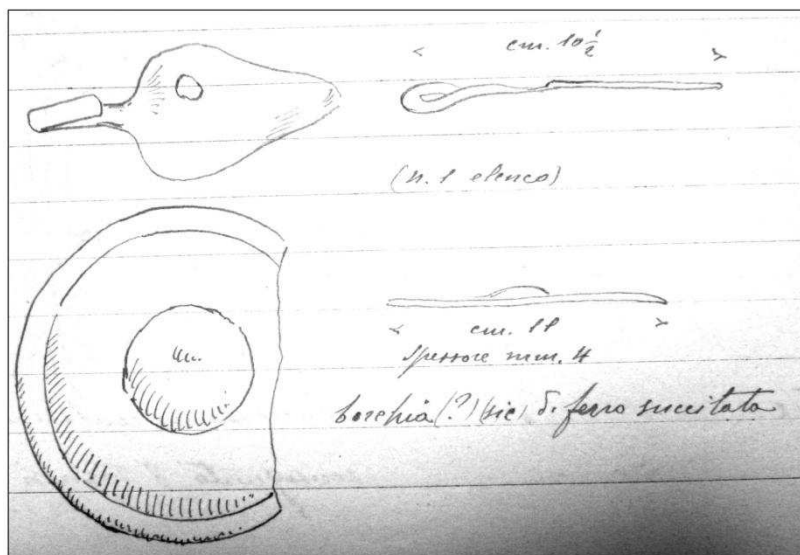 cm. 10 1/2
(n. 1 elenco)
cm. 11
spessore mm. 4
borchia (?) (sic) di ferro succitata